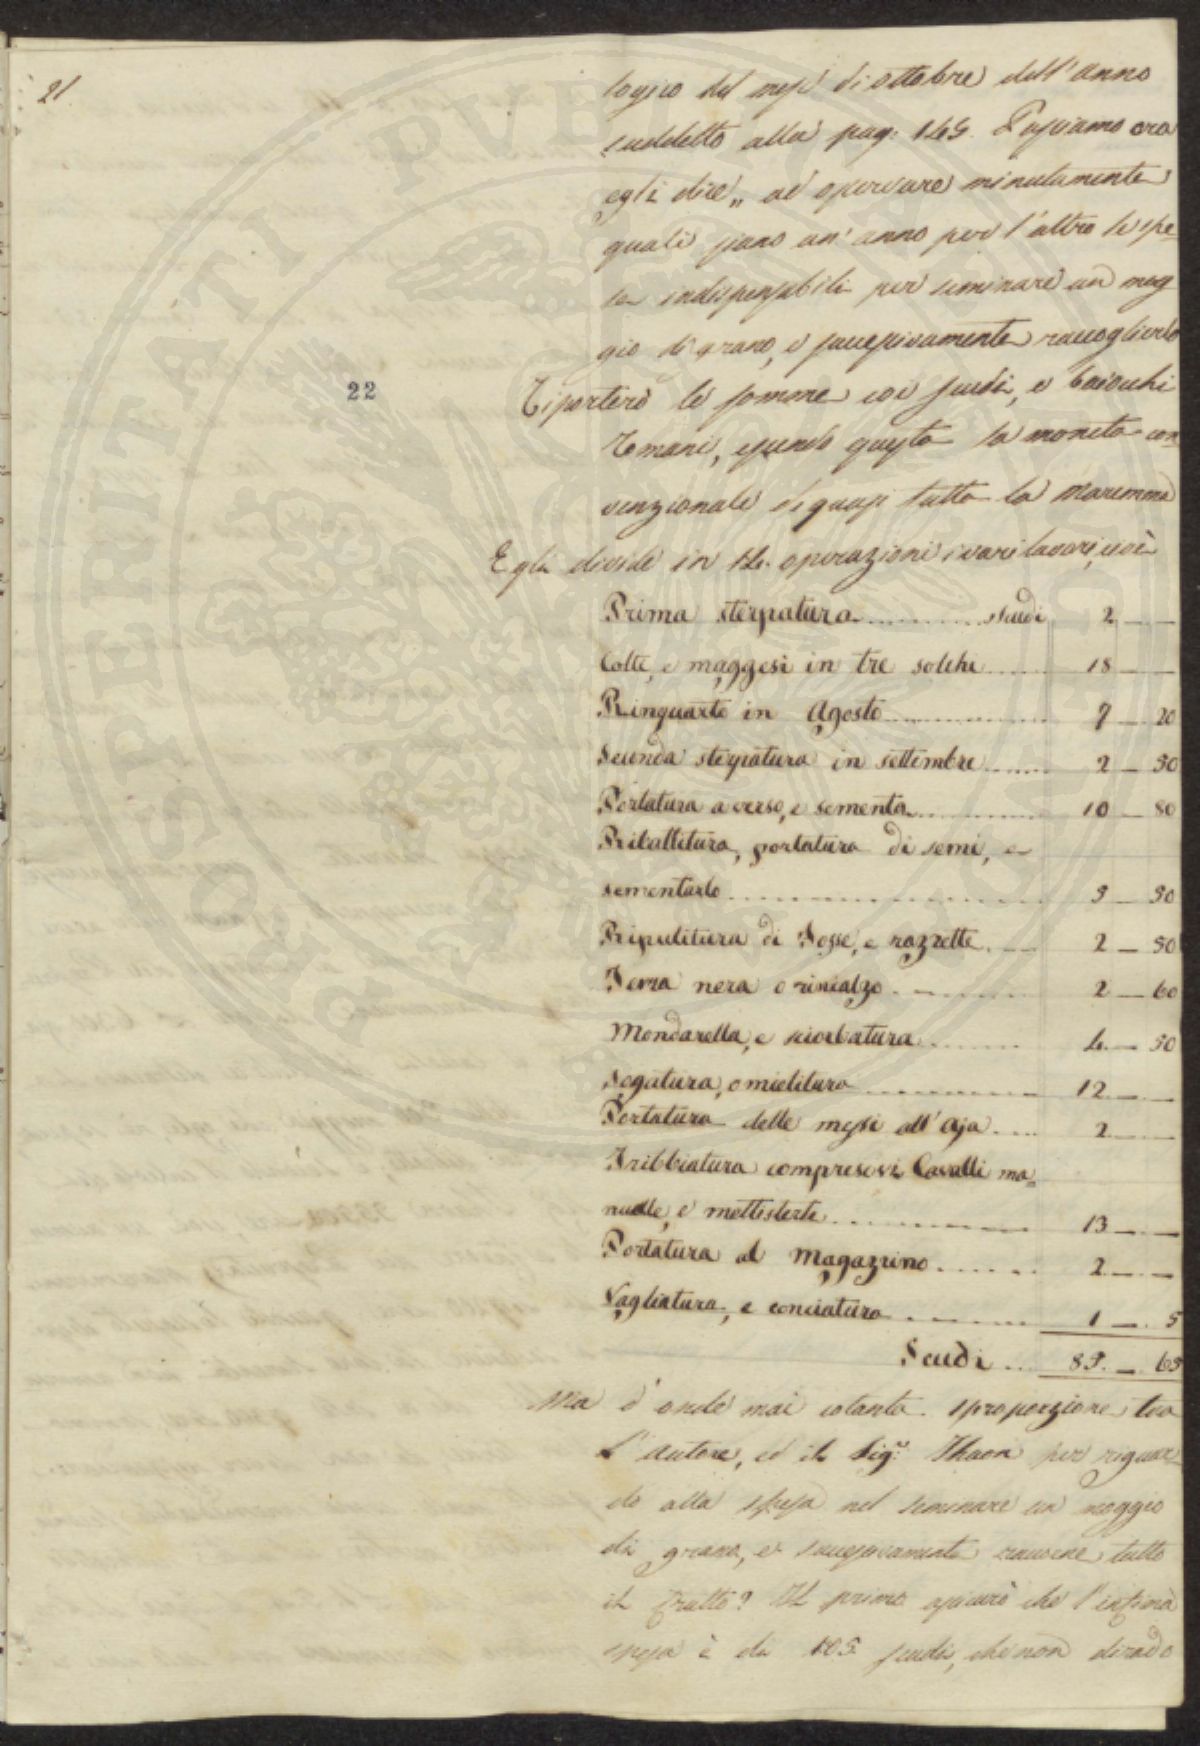 21
logio del mese di ottobre dell'anno
suddetto alla pag: 145. Passiamo ora
egli dice„ ad osservare minutamente
quali siano un'anno per l'altro le spe=
se indispensabili per seminare un mog
gio di grano, e successivamente raccoglierlo
22
Riporterò le somme coi scudi, e baiocchi
Romani, essendo questa la moneta con=
venzionale di quasi tutta la Maremma
Egli divide in 14. operazioni i vari lavori, cioè
Prima sterpatura scudi 2
Colte, e maggesi in tre solchi 18
Rinquarto in Agosto 7 20
Seconda sterpatura in settembre 2 50
Portatura a verso, e sementa 10 80
Ribattitura, portatura di semi, e
sementarlo 3 50
Ripulitura di Fosse, e razzette 2 50
Terra nera o rincalzo 2 60
Mondarella, e sciorbatura 4. 50
Segatura, o mietitura 12
Portatura delle messi all'Aja 2
Tribbiatura compresovi Cavalli ma=
nuale, e mettisterte 13
Portatura al Magazzino 2
Vagliatura, e conciatura 1 5
Scudi 83. 65
Ma d'onde mai cotanta sproporzione tra
L'autore, ed il Sig.r Thaon per riguar=
do alla spesa nel seminare un moggio
di grano, e successivamente trarne tutto
il frutto? Il primo assicurò che l'infima
spesa è di 105 scudi, che non dirado
PROSPERITATI PVBLICAE